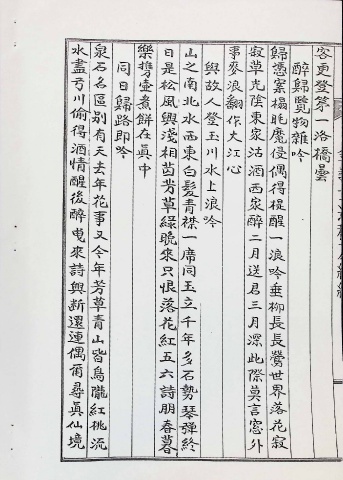 客更登第一洛橋曇
醉歸覽物雜吟
歸憑案榻眊魔侵偶得提醒一浪吟垂柳長長鶯世界落花寂
寂草光陰東家沽酒西家醉二月送君三月深此際莫言窓外
事麥浪翻作大江心
與故人登玉川水上浪吟
山之南北水西東白髮青襟一席同玉立千年多石勢琴彈終
日是松風興淺相茵芳草綠晚來只恨落花紅五六詩朋春暮
樂携壺煮餅在其中
同日歸路即吟
泉石名區別有天去年花事又今年芳草青山皆鳥隴紅桃流
水盡弓川偷得酒情醒後醉曳來詩興斷還連偶爾尋眞仙境